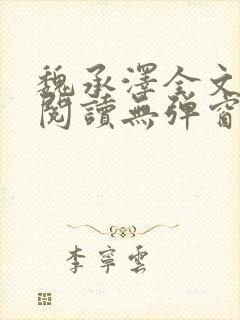 魏承澤全文
閱讀無彈窗
李寧雲